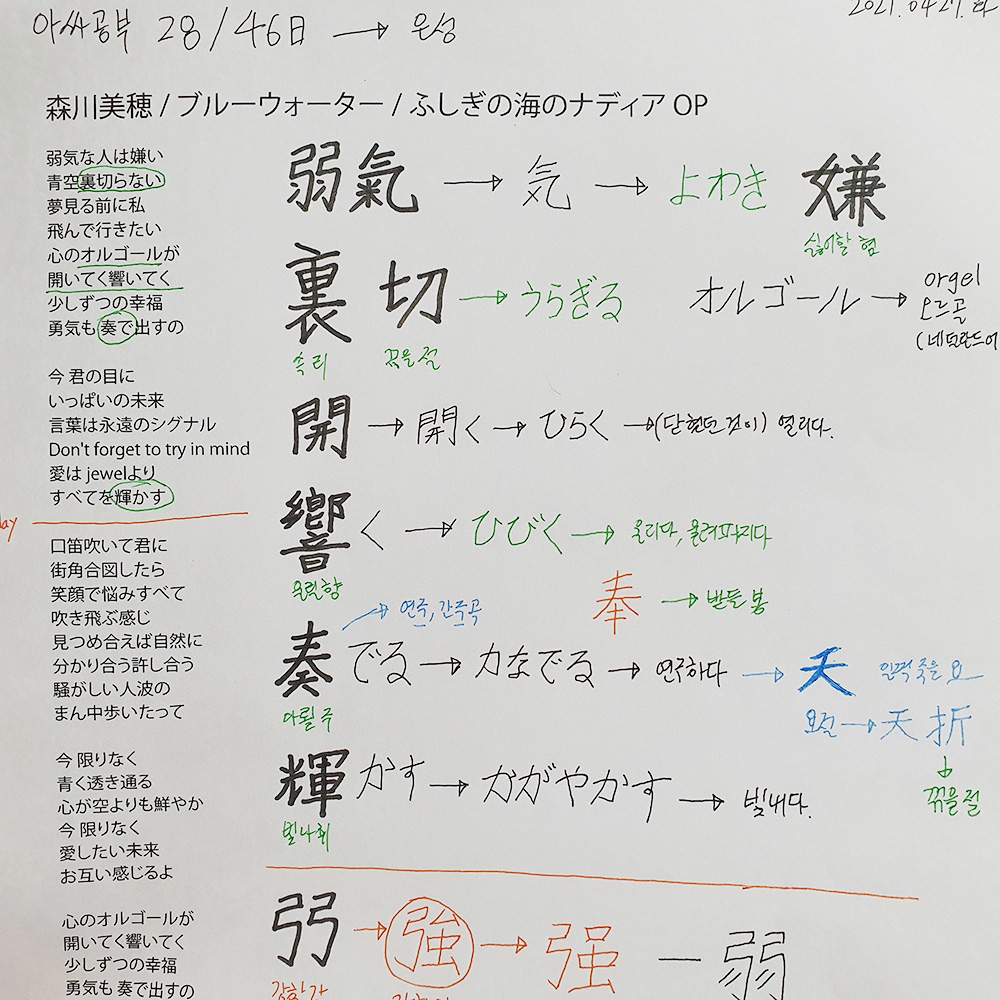 아싸공부 28/46日 → 은성
2021.04.27.화
森川美穂 / ブルーウォーター / ふしぎの海のナディア OP
弱気な人は嫌い
青空裏切らない
夢見る前に私
飛んで行きたい
心のオルゴールが
開いてく響いてく
少しずつの幸福
勇気も 奏で出すの
今 君の目に
いっぱいの未来
言葉は永遠のシグナル
Don't forget to try in mind
愛は jewelより
すべてを輝かす
day
口笛吹いて君に
街角合図したら
笑顔で悩みすべて
吹き飛ぶ感じ
見つめ合えば自然に
分かり合う許し合う
騒がしい人波の
まん中歩いたって
今 限りなく
青く透き通る
心が空よりも鮮やか
今 限りなく
愛したい未来
お互い感じるよ
心のオルゴールが
開いてく響いてく
少しずつの幸福
勇気も 奏で出すの
弱氣 → 気 → よわき 嫌
싫어할 혐
裏切 → うらぎる オルゴール → orgel
오르골
(네덜란드어
속 리 끊을 절
開 → 開く → ひらく → (닫혔던 것이) 열리다.
響く → ひびく → 울리다, 울려퍼지다
울릴 향
奉 → 받들 봉
→ 연주, 간주곡
奏でる → かなでる → 연주하다 → 夭 일찍 죽을 요
아뢸 주
요절 → 夭折
꺾을 절
輝かす → かがやかす → 빛내다.
빛날 휘
弜 → 強 → 强 — 弱
강할 강